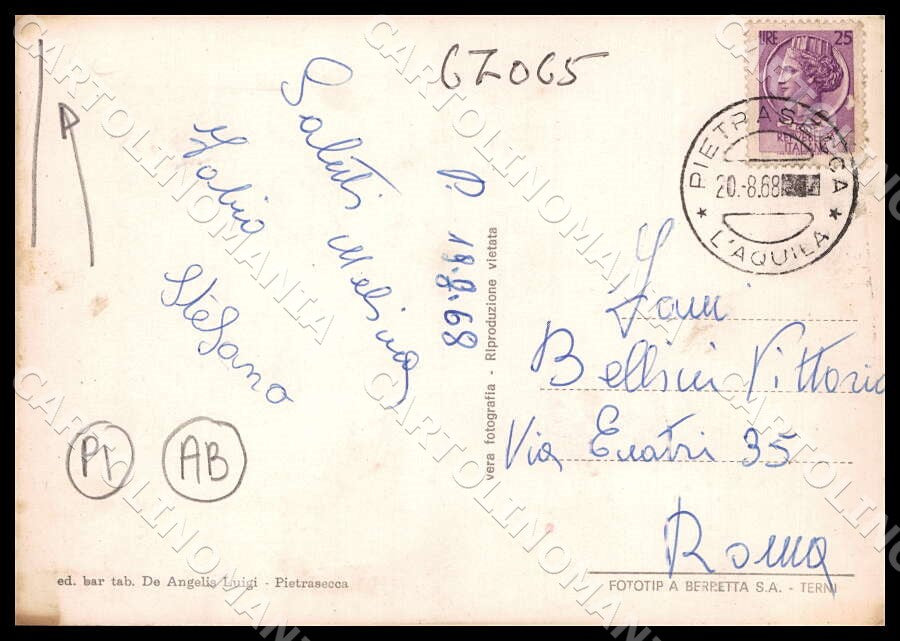 67065
LIRE 25
REPUBBLICA
ITALIANA
PIETRASECCA
20.-8.68
L'AQUILA
Saluti Melina
Fabio
Stefano
P. 19.8.68
vera fotografia - Riproduzione vietata
Bellini Vittorio
Via 35
Roma
P1
AB
ed. bar tab. De Angelis Luigi - Pietrasecca
FOTOTIP A BERRETTA S.A. - TERNI
CARTOLINOMANIA